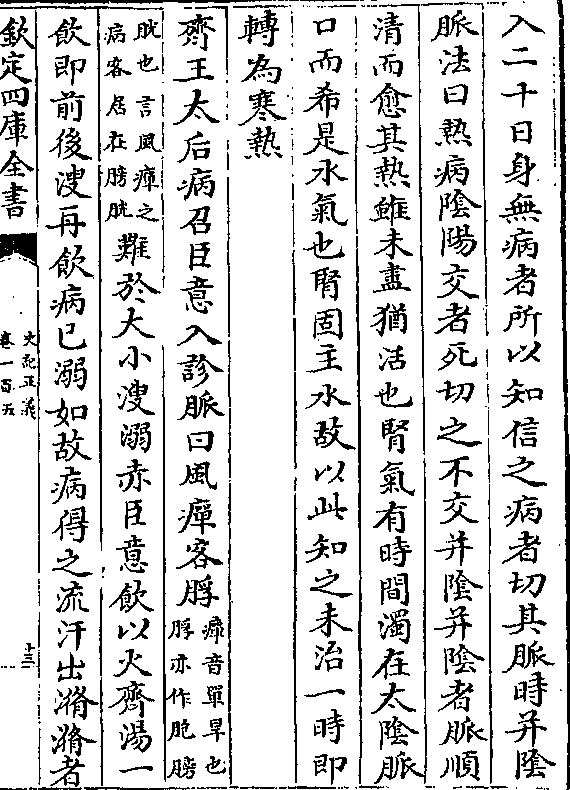 入二十日身無病者所以知信之病者切其脈時并陰
脈法曰熱病陰陽交者死切之不交并陰并陰者脈順
清而愈其熱雖未盡猶活也腎氣有時間濁在太陰脈
口而希是水氣也腎固主水故以此知之未治一時即
轉為寒熱
齊王太后病召臣意入診脈曰風癉客脬癉音單旱也
脬亦作胞膀
胱也言風癉之
病客居在膀胱難於大小溲溺赤臣意飲以火齊湯一
飲即前後溲再飲病已溺如故病得之流汗出㵌㵌者
欽定四庫全書
史記正義
卷一百五
十三